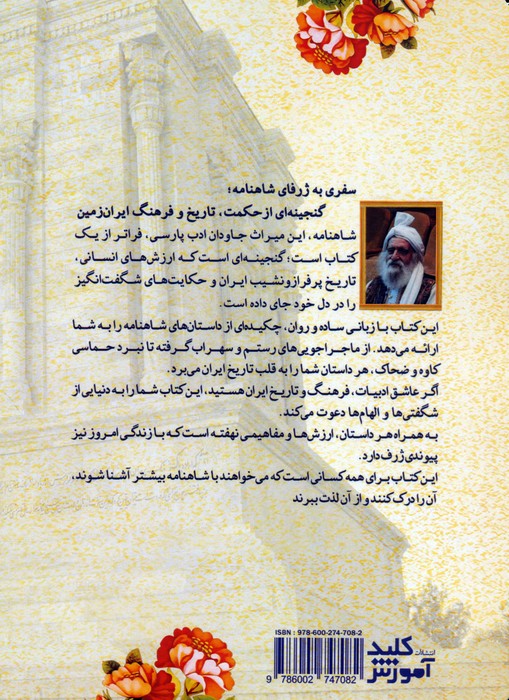 سفری به ژرفای شاهنامه؛
گنجینه‌ای از حکمت، تاریخ و فرهنگ ایران‌زمین
شاهنامه، این میراث جاودان ادب پارسی، فراتر از یک
کتاب است؛ گنجینه‌ای است که ارزش‌های انسانی،
تاریخ پرفرازونشیب ایران و حکایت‌های شگفت‌انگیز
را در دل خود جای داده است.
این کتاب با زبانی ساده و روان، چکیده‌ای از داستان‌های شاهنامه را به شما
ارائه می‌دهد. از ماجراجویی‌های رستم و سهراب گرفته تا نبرد حماسی
کاوه و ضحاک، هر داستان شما را به قلب تاریخ ایران می‌برد.
اگر عاشق ادبیات، فرهنگ و تاریخ ایران هستید، این کتاب شما را به دنیایی از
شگفتی‌ها و الهام‌ها دعوت می‌کند.
به همراه هر داستان، ارزش‌ها و مفاهیمی نهفته است که با زندگی امروز نیز
پیوندی ژرف دارد.
این کتاب برای همه کسانی است که می‌خواهند با شاهنامه بیشتر آشنا شوند،
آن را درک کنند و از آن لذت ببرند
ISBN : 978-600-274-708-2
9 786002 747082
انتشارات
کلید
آموزش